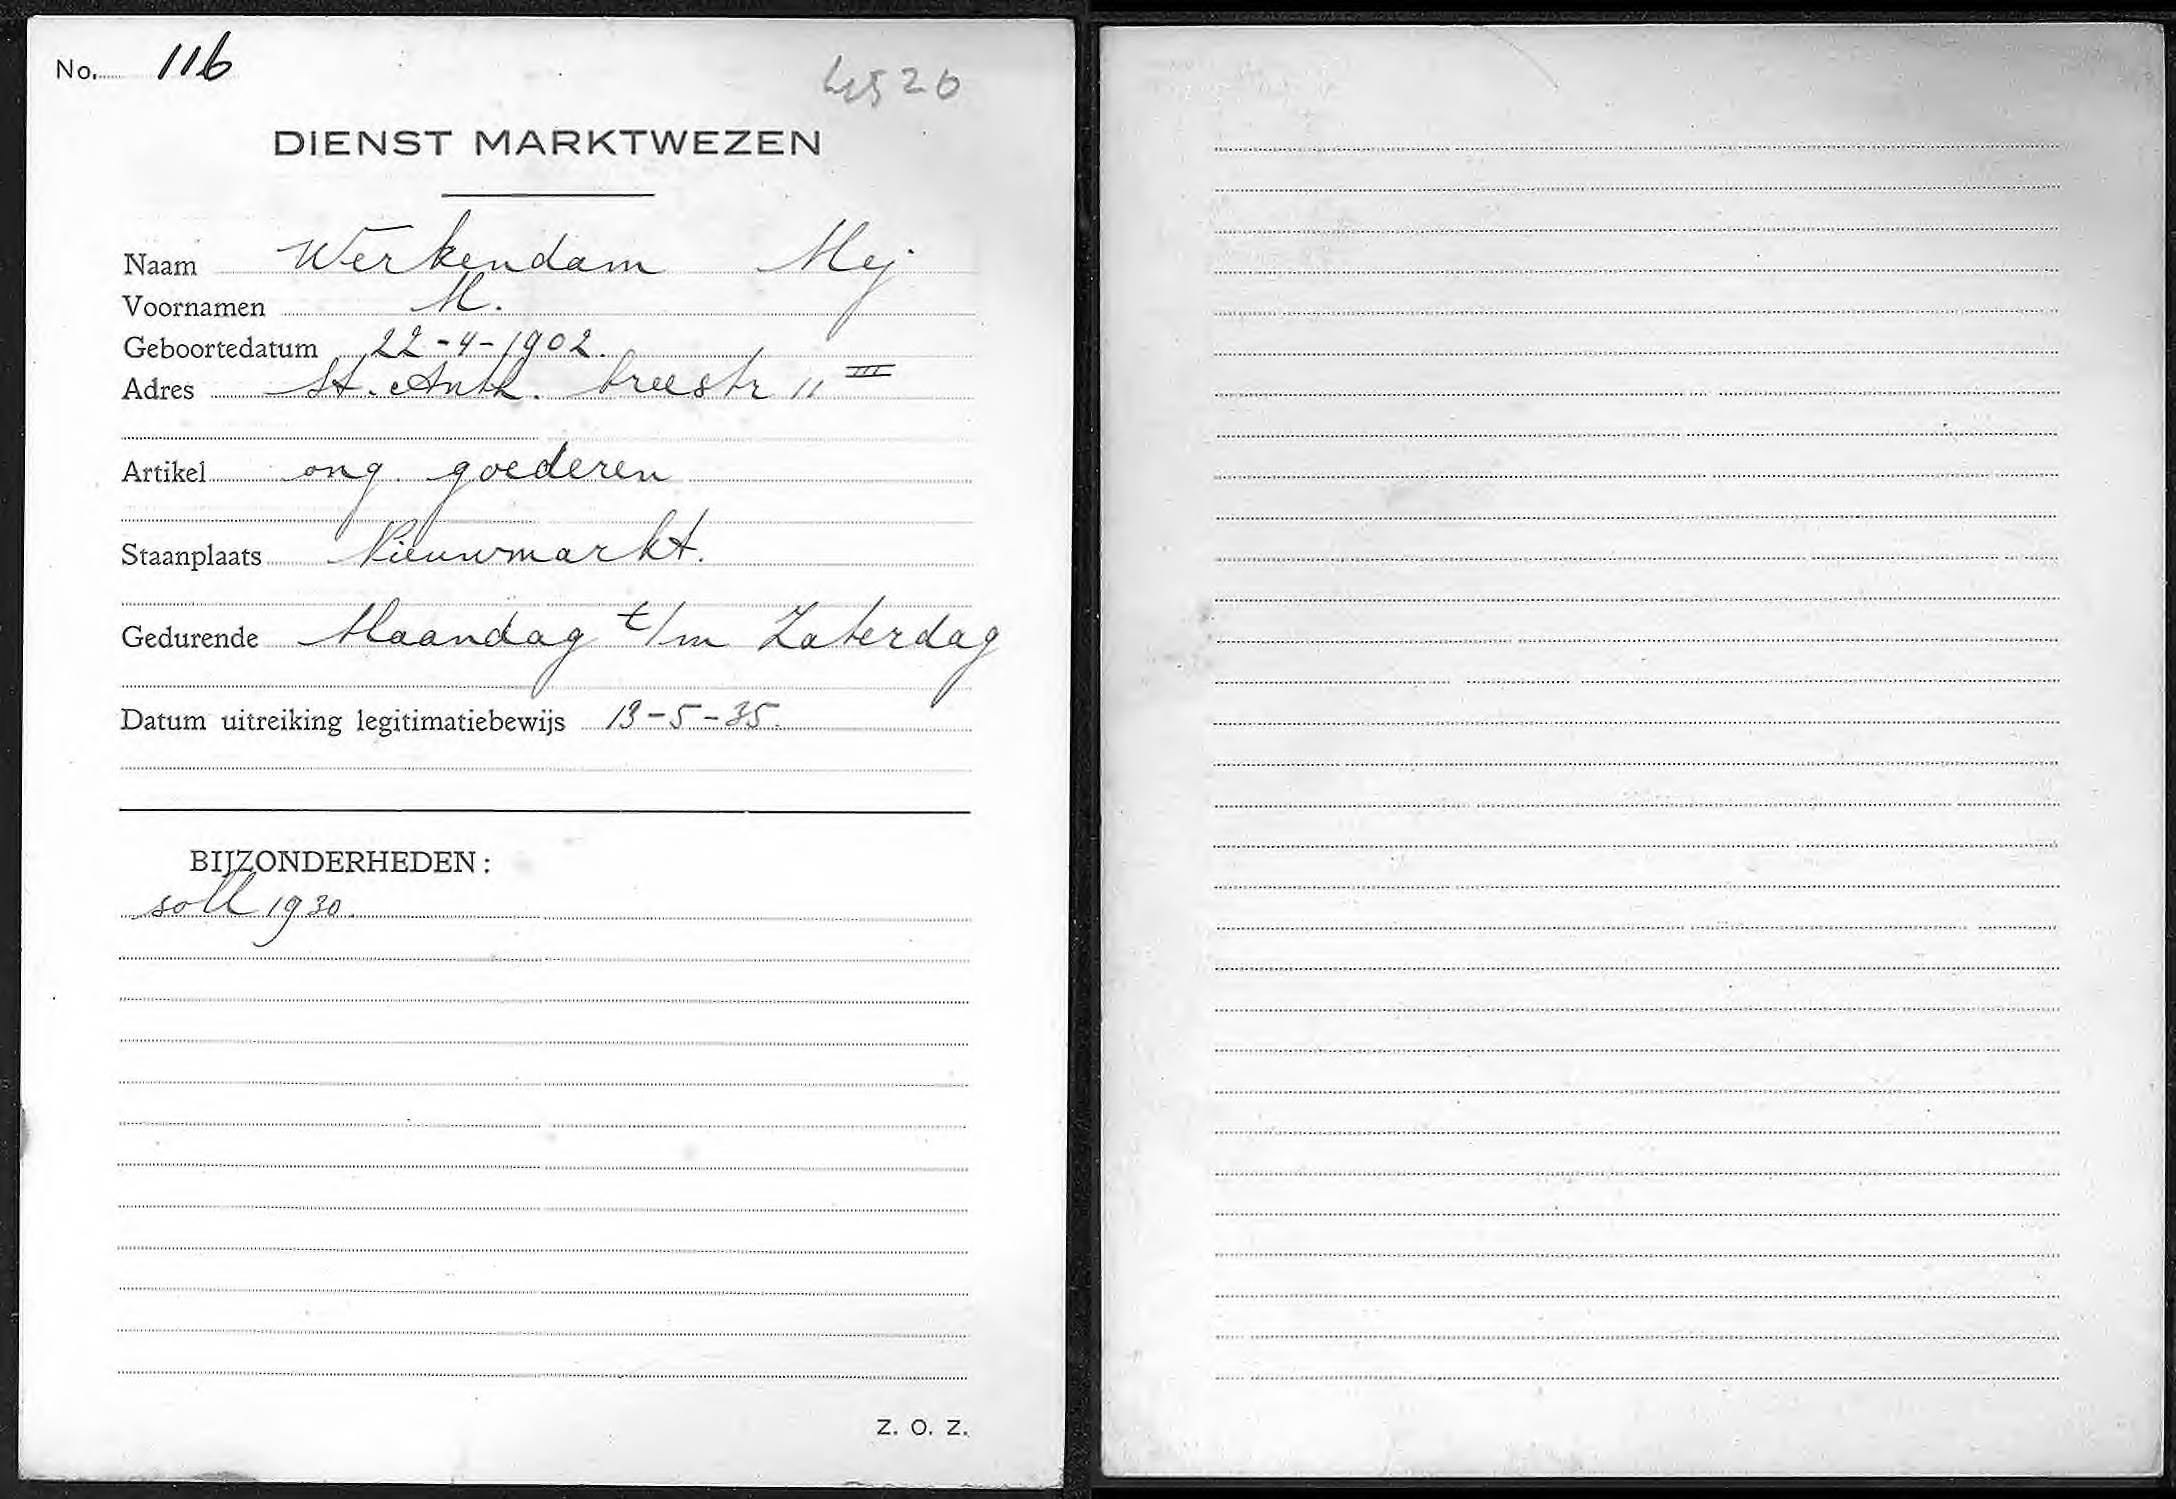 No. 116
4520
DIENST MARKTWEZEN
Naam Werkendam Mej
Voornamen M.
Geboortedatum 22-4-1902.
Adres St. Anth. breestr 11 III
Artikel ong. goederen
Staanplaats Nieuwmarkt.
Gedurende Maandag t/m Zaterdag
Datum uitreiking legitimatiebewijs 13-5-35.
BIJZONDERHEDEN:
soll 1930.
Z. O. Z.